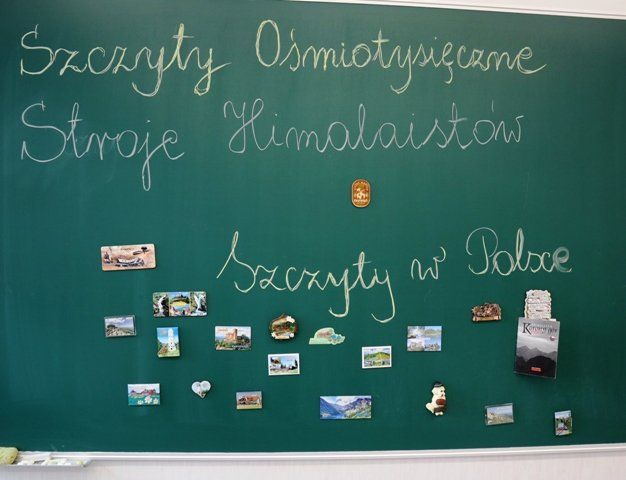 Szczyty Ośmiotysięczne
Stroje Himalaistów
Szczyty w Polsce